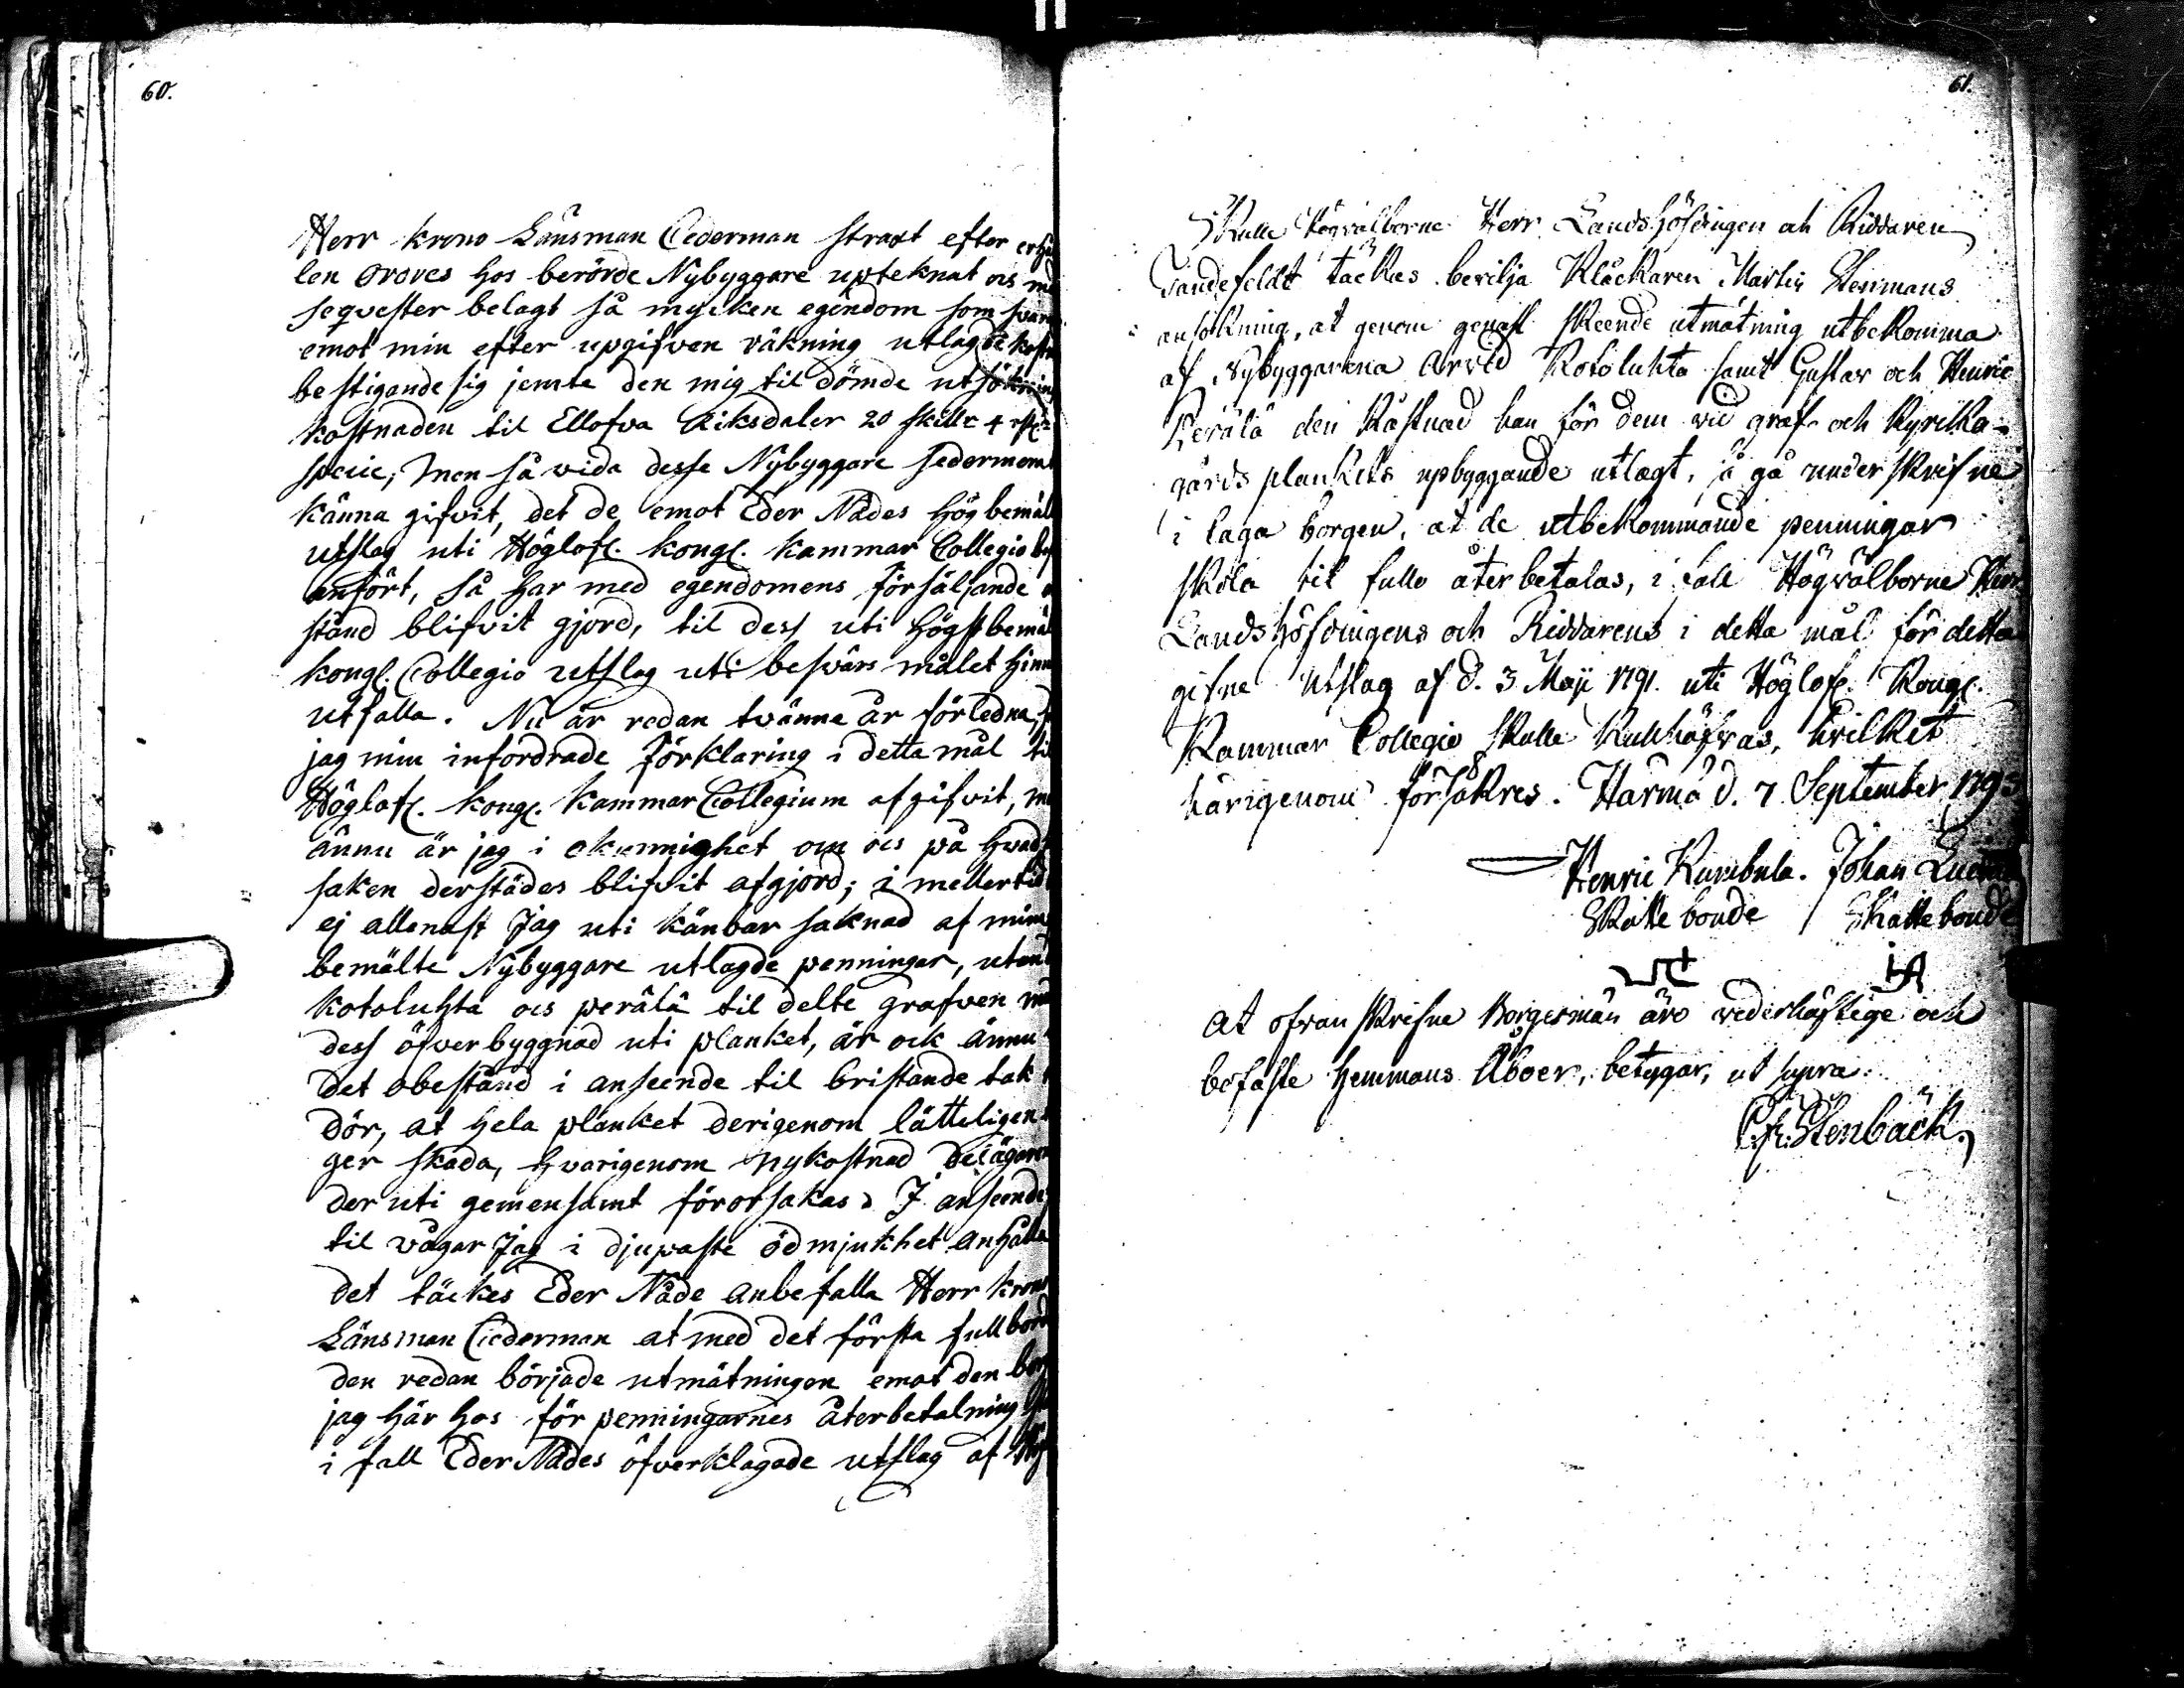 60.
Herr Krono Länsman Cederman straxt efter
len ordres hos berörde Nybyggare upteknat ocs med
seqvester belagt så mycken egendom som svara
emot min efter upgifven räkning utlagde kostn
bestigande sig jemte den mig til dömde utsöknings
kostnaden til Ellofva Riksdaler 20 skillr 4 rst.
specie; men så vida desse Nybyggare sedermera
känna gifvit, det de emot Eder Nådes Hög bemäl
utslag uti Höglofl. Kongl. Kammar Collegio bes
anfört, så har med egendomens försäljande
stånd blifvit gjord, til dess uti Högstbemä
Kongl. Collegio utslag uti besvärs målet hinn
utfalla. Nu är redan tvänne år förledna,
jag min infordrade Förklaring i detta mål til
Höglofl. Kongl. Kammar Collegium afgifvit, me
ännu är jag i okunnighet om ocs på hvad
saken derstädes blifvit afgjord; i mellertid
ej allenast Jag uti känbar saknad af mina
bemälte Nybyggare utlagde penningar, utan
Kotoluhta ocs Perälä til delte grafven med
dess öfverbyggnad uti planket, är ock ännu
det obestånd i anseende til bristande tak
dör, at hela planket derigenom lätteligen
ger skada, hvarigenom ny kostnad Delägaren
der uti gemensamt förorsakas. I anseende
til vågar Jag i djupaste ödmjukhet anhålla
det täckes Eder Nåde anbefalla Herr Krono
Länsman Ciederman at med det första fullborda
den redan började utmätningen emot den bor
jag här hos för penningarnes återbetalning
i fall Eder Nådes öfverklagade utslag af Hög
61.
Skulle Högvälborne Herr Landshöfdingen och Riddaren
täckes bevilja Klåckaren Martin Stenmans
ansökning, at genom genast skeende utmätning utbekomma
af Nybyggarena Arvid Kotoluhta samt Gustav och Henric
Perälä den Kåstnad han för dem vid graf- och Kyrcko-
gårds planckets upbyggande utlagt, så gå underskrifne
i laga borgen, at de utbekommande penningar
skola til fullo återbetalas, i fall Högvälborne Herr
Landshöfdingens och Riddarens i detta mål för detta
gifne Utslag af d. 3 Maji 1791. uti Höglofl. Kongl.
Kammar Collegio skulle Kullkåfvas, hvilket
härigenom försäkres. Härmä d. 7 September 1793
Henric Kumbula. Johan
Skatte bonde Skatte bonde
At ofvanskrifne Borgesmän äro vederhäftige och
bofaste Hemmans Åboer, betygar, ut supra.
C. Fr. Stenbäck.